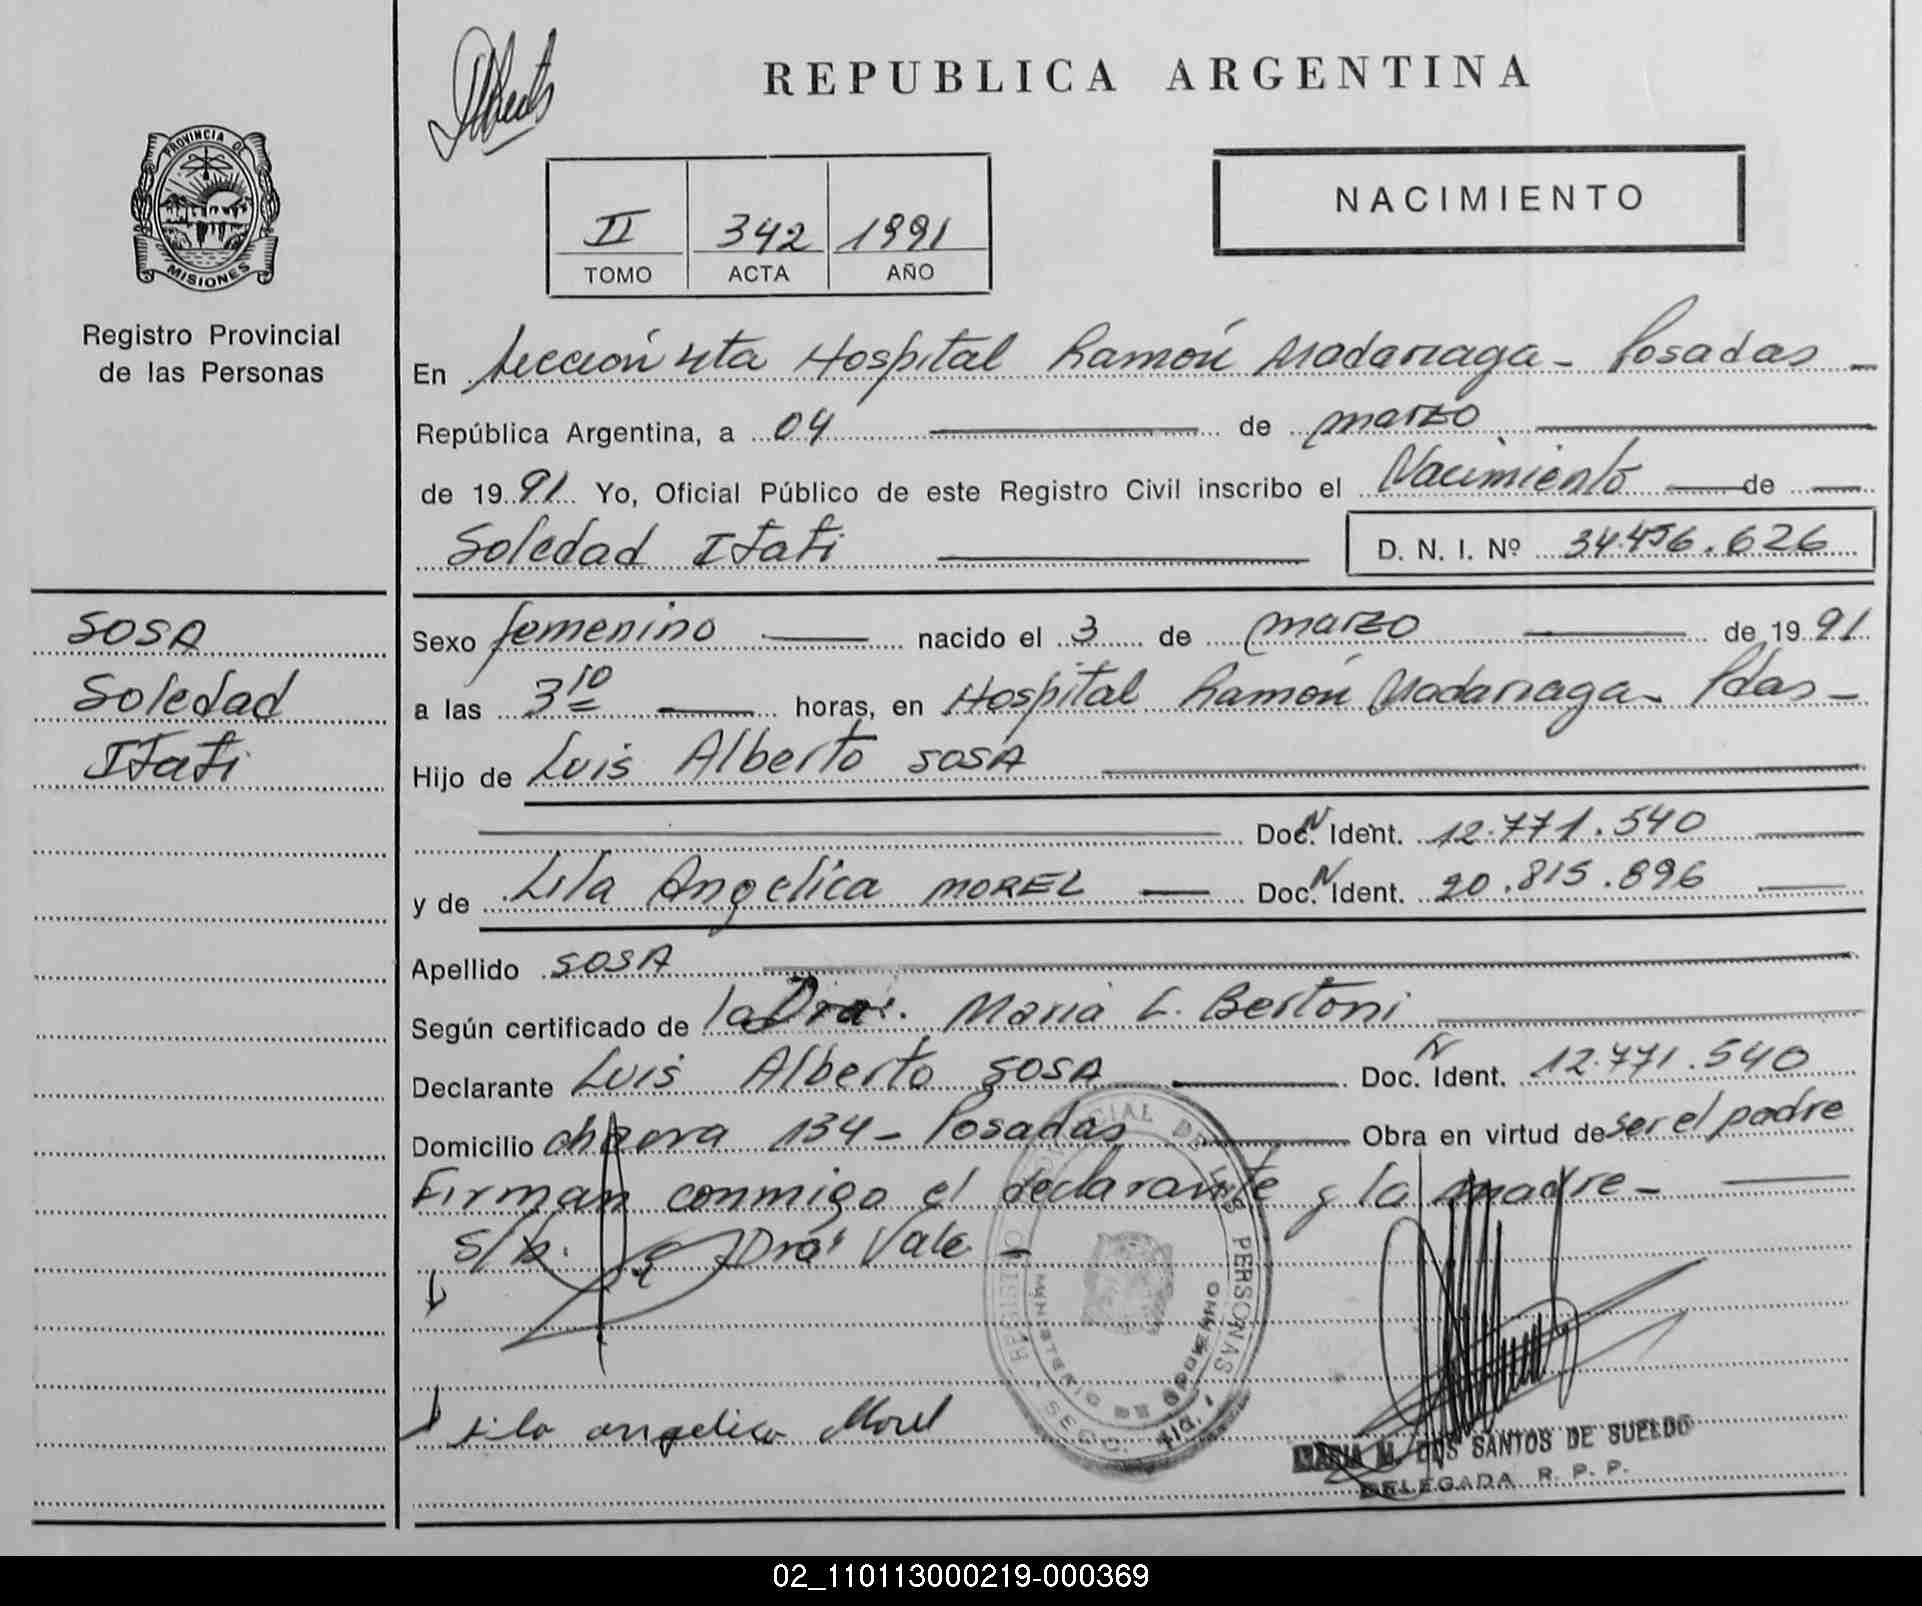 REPUBLICA ARGENTINA
PROVINCIA DE
MISIONES
Registro Provincial
de las Personas
NACIMIENTO
II 342 1991
TOMO ACTA AÑO
En Sección 4ta Hospital Ramón Madariaga - Posadas -
República Argentina, a 04 de marzo
de 1991 Yo, Oficial Público de este Registro Civil inscribo el Nacimiento de
Soledad Itati D. N. I. Nº 34.456.626
SOSA
Soledad
Itati
Sexo femenino nacido el 3 de marzo de 1991
a las 3 10 horas, en Hospital Ramón Madariaga - Pdas -
Hijo de Luis Alberto SOSA
Doc. N Ident. 12.771.540
y de Lila Angelica MOREL Doc. N Ident. 20.815.896
Apellido SOSA
Según certificado de la Dra. Maria L. Bertoni
Declarante Luis Alberto SOSA Doc. N Ident. 12.771.540
Domicilio chacra 134 - Posadas Obra en virtud de ser el padre
Firman conmigo el declarante y la madre -
S/b. Dra Vale -
Lila angelica Morel
REGISTRO PROVINCIAL DE LAS PERSONAS
MINISTERIO DE GOBIERNO
MARIA M. DOS SANTOS DE SUELDO
DELEGADA R. P. P.
02_110113000219-000369